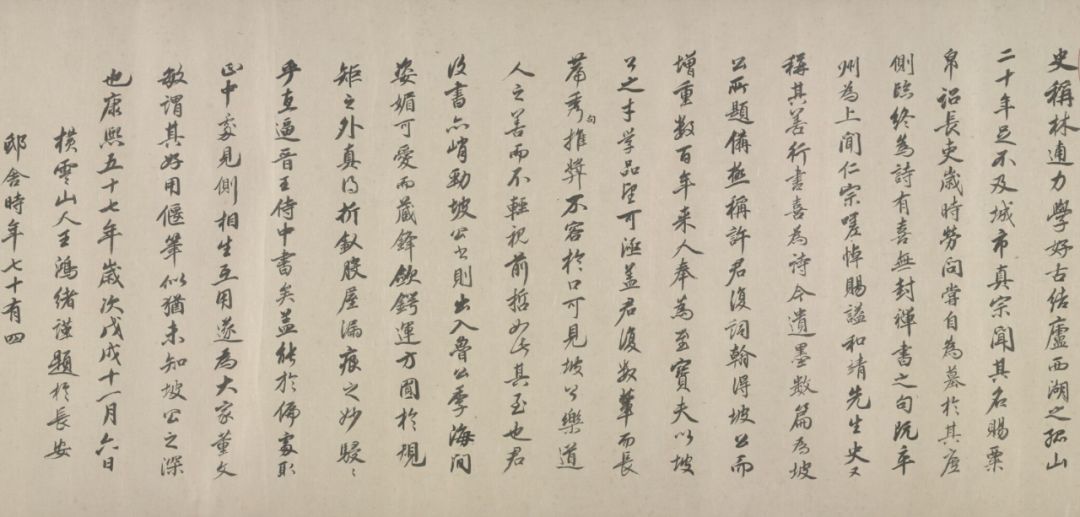 史稱林逋力學好古結廬西湖之孤山
二十年足不及城市真宗聞其名賜粟
帛詔長吏歲時勞問嘗自為墓於其廬
側臨終為詩有喜無封禪書之句既卒
州為上聞仁宗嗟悼賜謚和靖先生史又
稱其善行書喜為詩今遺墨數篇為坡
公所題備極稱許君復詞翰得坡公而
增重數百年來人奉為至寶夫以坡
公之才學品望可涵蓋君復數輩而長
篇秀句推獎不容於口可見坡公樂道
人之善而不輕視前哲如此其至也君
復書亦峭勁坡公書則出入魯公季海間
姿媚可愛而藏鋒斂鍔運方圓於規
矩之外真得折釵股屋漏痕之妙駸駸
乎直逼晉王侍中書矣蓋能於偏處取
正中處見側相生互用遂為大家董文
敏謂其好用偃筆似猶未知坡公之深
也康熙五十七年歲次戊戌十一月六日
橫雲山人王鴻緒謹題於長安
邸舍時年七十有四